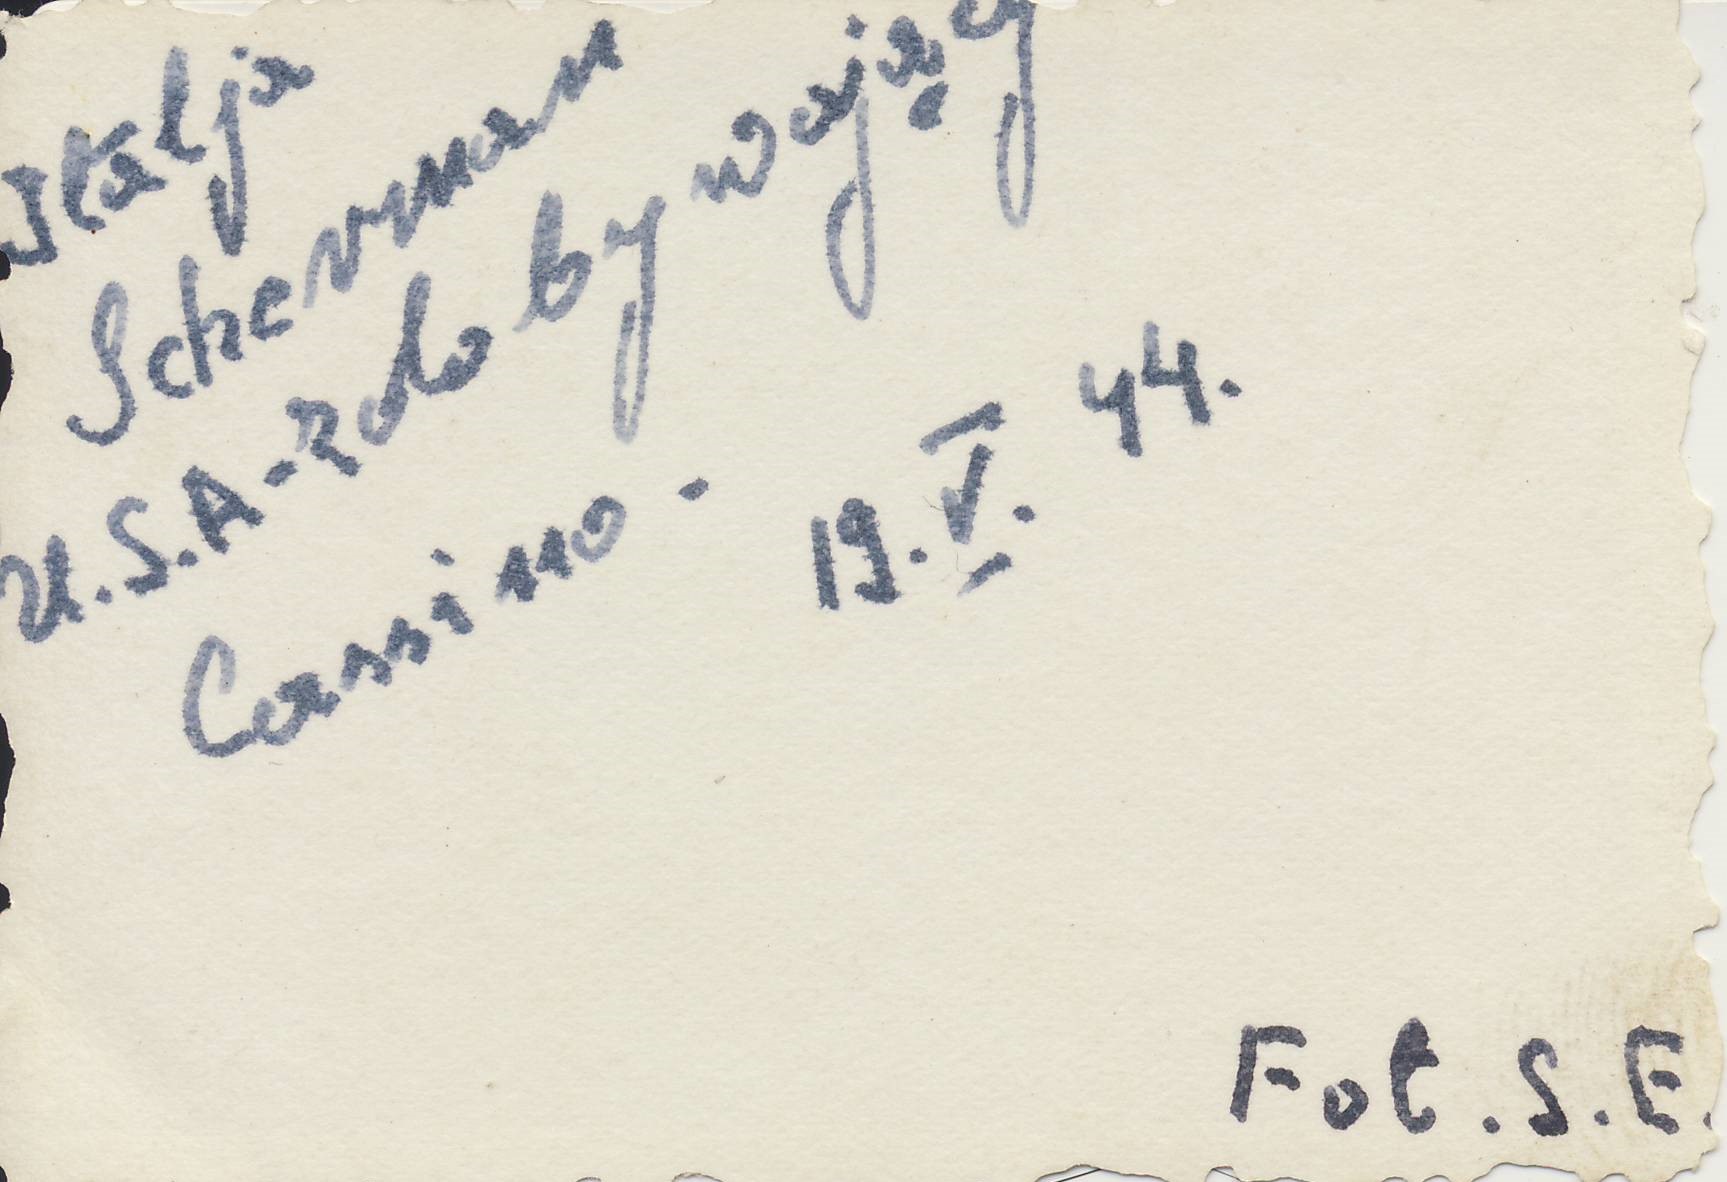 Italja
Scherman
U.S.A-zdobywający
Cassino.
19.V.44.
Fot.S.E.